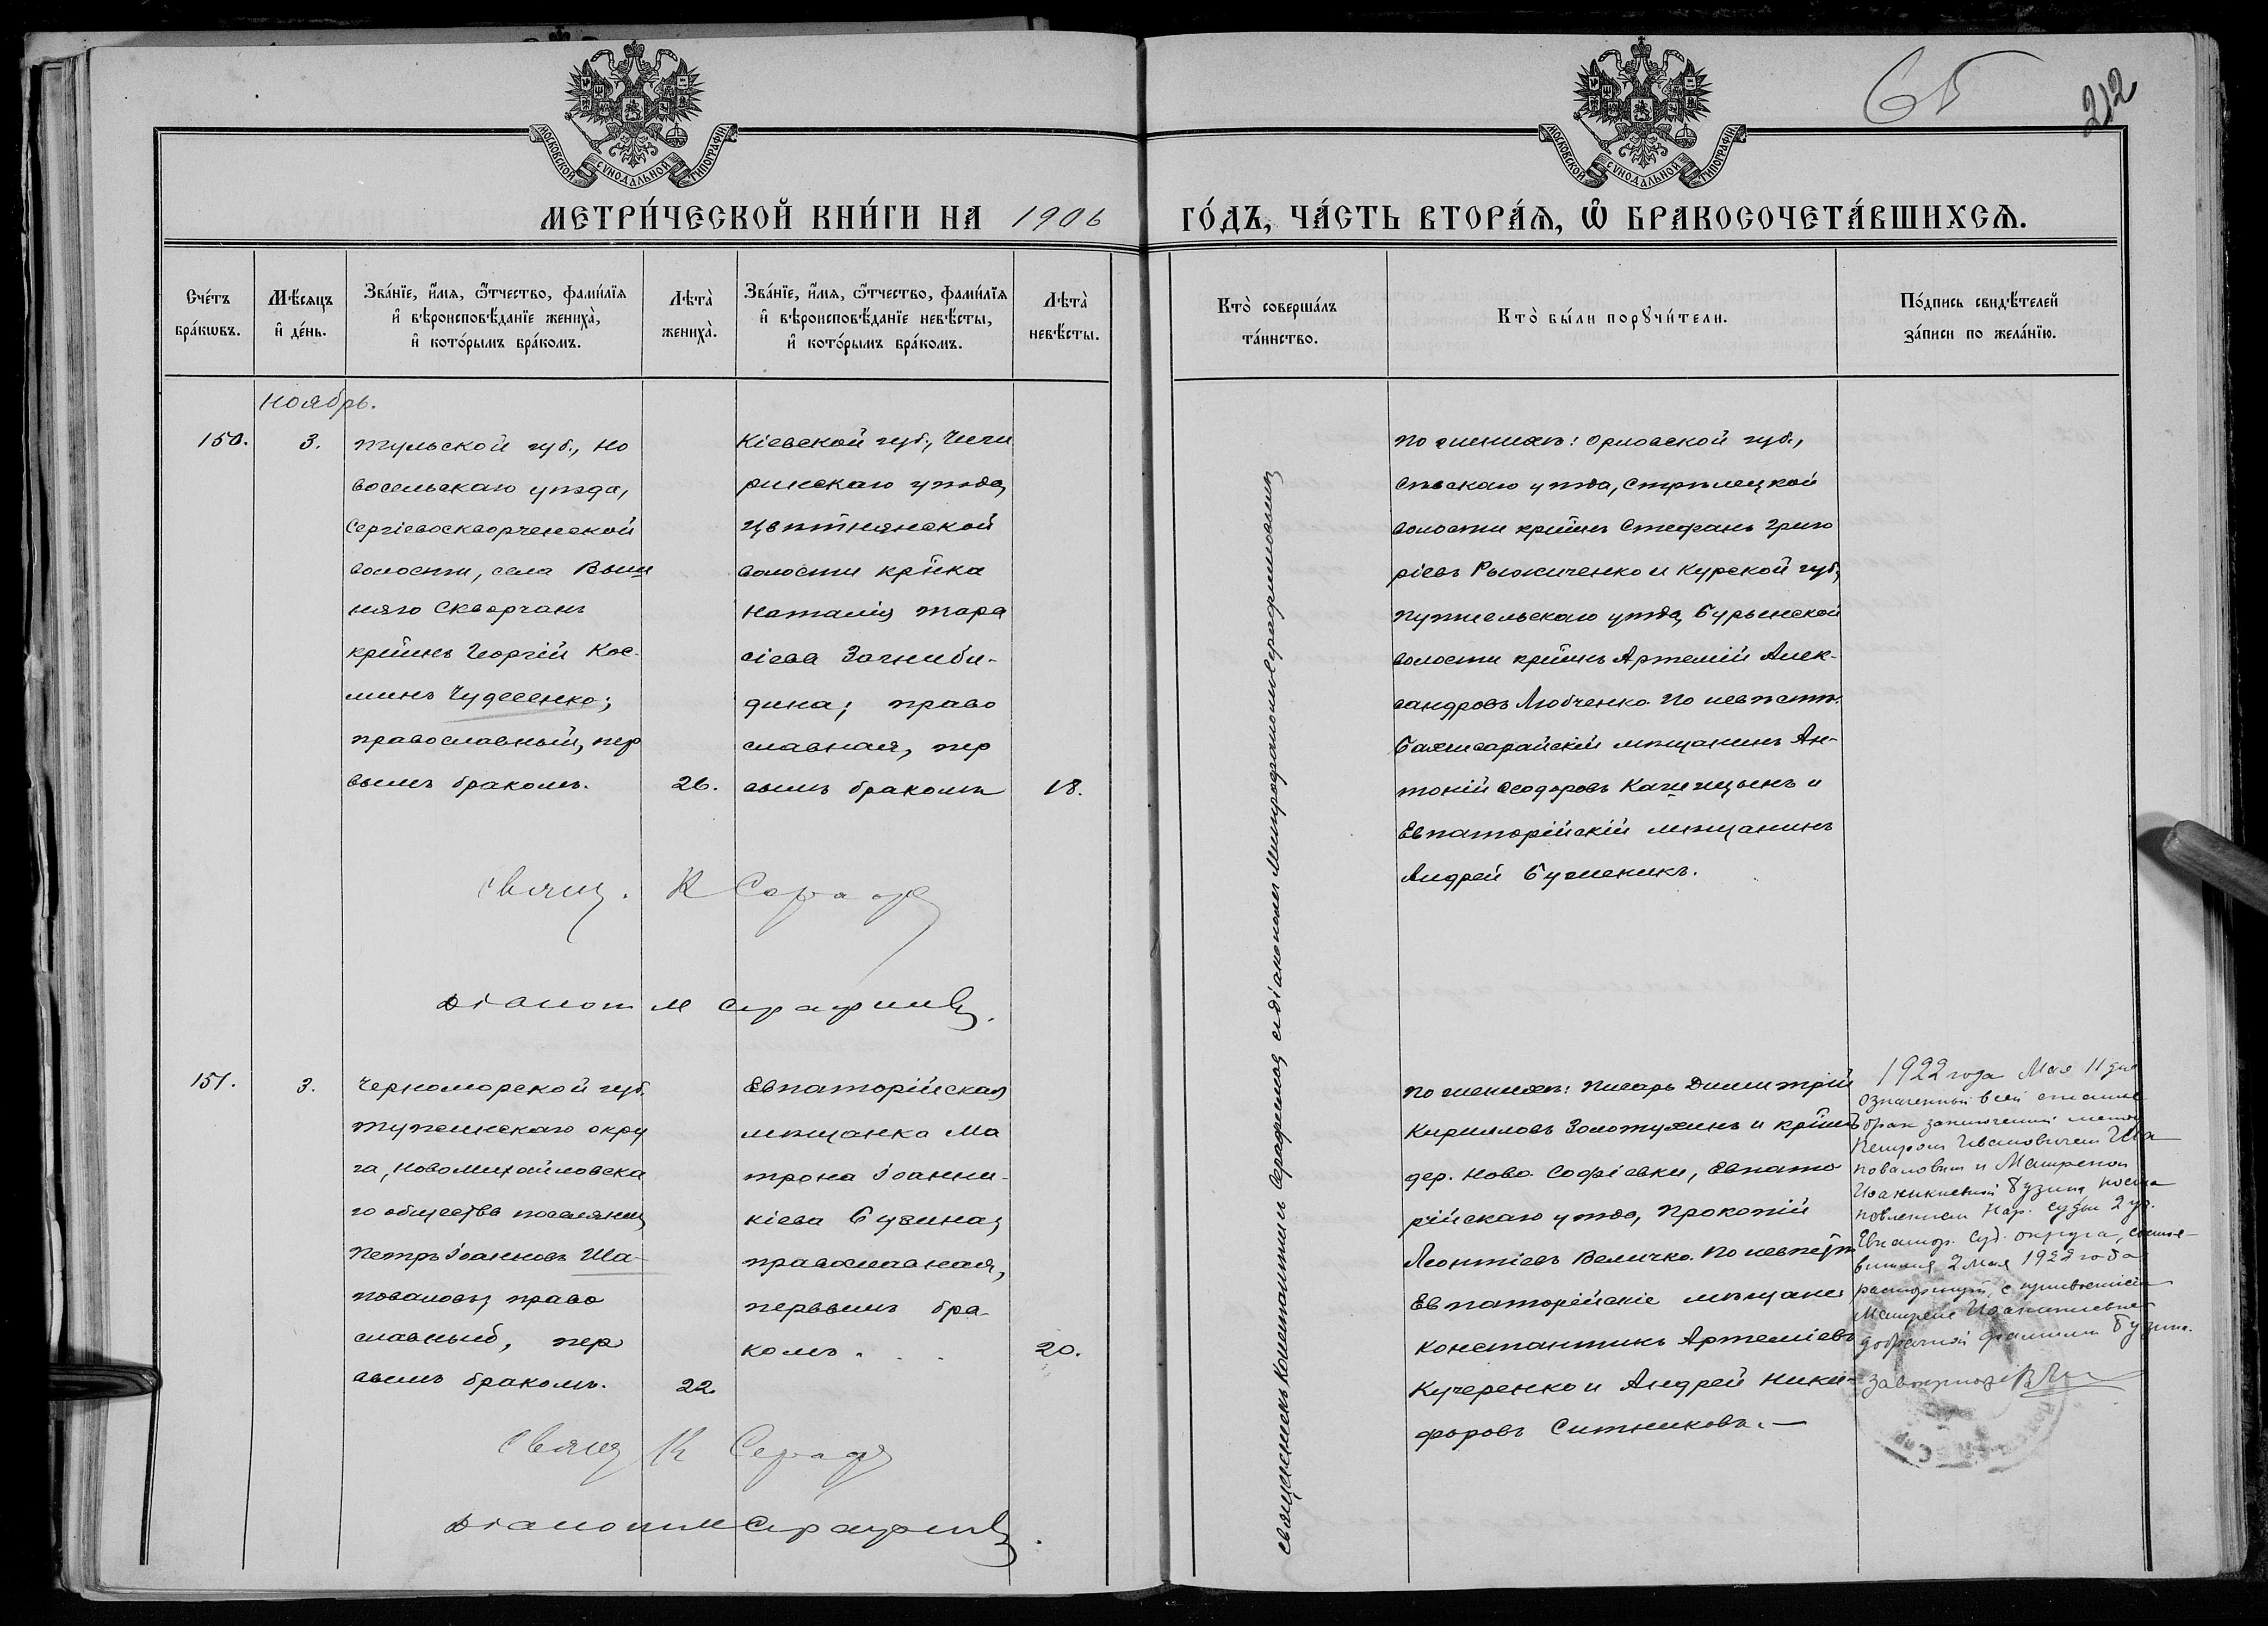 65
212
МОСКОВСКОЙ СѴНОДАЛЬНОЙ ТИПОГРАФІИ
МОСКОВСКОЙ СѴНОДАЛЬНОЙ ТИПОГРАФІИ
МЕТРИ́ЧЕСКОЙ КНИ́ГИ НА 1906 ГО́ДЪ, ЧА́СТЬ ВТОРА́Ѧ, Ѡ҆ БРАКОСОЧЕТА́ВШИХСѦ.
Сче́тъ
бра́кѡвъ.
Мѣ́сѧцъ
и҆ де́нь.
Зва́нїе, и҆́мѧ, ѻ҆́тчество, фами́лїѧ
и҆ вѣроисповѣ́данїе жениха̀,
и҆ кото́рымъ бра́комъ.
Лѣта̀
жениха̀.
Зва́нїе, и҆́мѧ, ѻ҆́тчество, фами́лїѧ
и҆ вѣроисповѣ́данїе невѣ́сты,
и҆ кото́рымъ бра́комъ.
Лѣта̀
невѣ́сты.
Кто̀ соверша́лъ
та́инство.
Кто̀ бы́ли порꙋчи́тели.
По́дпись свидѣ́телей
за́писи по жела́нїю.
Ноябрь.
150.
3.
Тульской губ., Но
восельскаго уѣзда,
Сергіевоскворченской
волости, села Выш
няго Скворчанъ
кр̃йинъ Георгій Кос-
минъ Чудесенко;
православный, пер
вымъ бракомъ.
26.
Кіевской губ., Чиги
ринскаго уѣзда,
Цвѣтнянской
волости кр̃йнка
Наталія Тара
сіева Загниби-
дина; право
славная, пер
вымъ бракомъ
18.
Свящ. К Сераф
Діаконъ М Серафимовъ.
Священникъ Константинъ Серафимовъ съ діакономъ Митрофаномъ Серафимовымъ
По женихѣ: Орловской губ.,
Сѣвскаго уѣзда, Стрѣлецкой
волости кр̃йинъ Стефанъ Григо
ріевъ Рыжиченко и Курской губ.,
Путивльскаго уѣзда, Бурынской
волости кр̃йинъ Артемій Алек-
сандровъ Любченко. По невѣстѣ:
Бахчисарайскій мѣщанинъ Ан-
тоній Ѳеодоровъ и
Евпаторійскій мѣщанинъ
Андрей
151.
3.
Черноморской губ.
Тупсинскаго окру
га, Новомихайловска
го общества поселянинъ
Петръ Іоанновъ Ша-
поваловъ, право
славный, пер
вымъ бракомъ.
22.
Евпаторійская
мѣщанка Ма
трона Іоанни-
кіева Бузина,
православная,
первымъ бра-
комъ.
20.
Свящ К Сераф
Діаконъ М Серафимовъ.
По женихѣ: писарь Димитрій
Кирилловъ Золотухинъ и кр̃йинъ
дер. Ново-Софіевки, Евпато
рійскаго уѣзда, Прокопій
Леонтіевъ Величко. По невѣстѣ:
Евпаторійскіе мѣщане:
Константинъ Артеміевъ
Кучеренко и Андрей Ники-
форовъ Ситниковъ.—
1922 года Мая 11 дня
означенный в сей статье
брак заключенный между
Петром Ивановичем Ша
поваловым и Матреной
Иоаникиевной Бузина поста
новлением Нар. судьи 2 уч.
Евпатор. суд. округа, состо-
вшимся 2 Мая 1922 года
расторгнут, с присвоением
Матрене Иоаникиевне
добрачной фамилии Бузина.